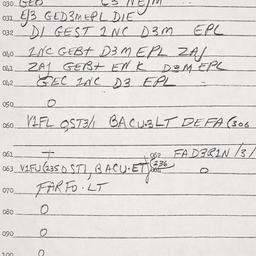 030. GED C3 NEJM
031 E/3 GED3MEPL DIE
032 D1 GEST 1NC D3M EPL
040 1NC GEBT D3M EPL ZAJ
041 ZAJ GEBT EN K D3M EPL
042 GEC 1NC D3 EPL
050. 0
060. V1FL OST3/1 BACU.3LT DEFA (306
061 T 062 FAD3Q1N /3/
063 V1FU(235 OST1, BACU.ET) 236 0
070. FARFO.LT
080 0
090 0
100 0